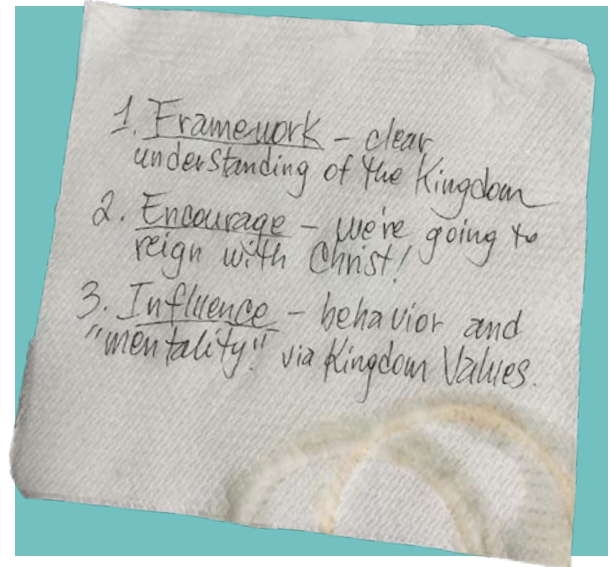 1. Framework – clear
understanding of the Kingdom
2. Encourage – we're going to
reign with Christ!
3. Influence – behavior and
"mentality" via Kingdom Values.